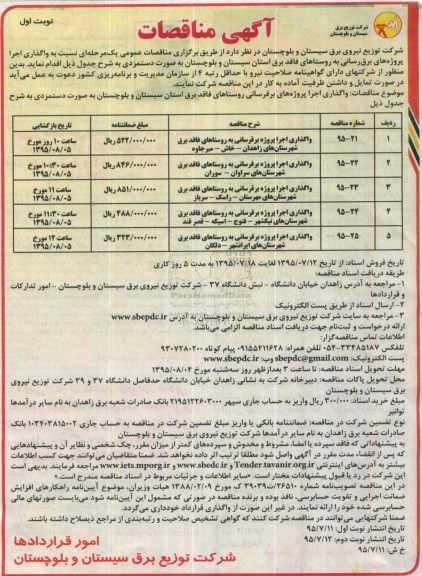 آگهی مناقصات
نوبت اول
شرکت توزیع برق
سیستان و بلوچستان
شرکت توزیع نیروی برق سیستان و بلوچستان در نظر دارد از طریق برگزاری مناقصات عمومی یک‌مرحله‌ای نسبت به واگذاری اجرا
پروژه‌های برق‌رسانی به روستاهای فاقد برق استان سیستان و بلوچستان به صورت دستمزدی به شرح جدول ذیل اقدام نماید. بدین
منظور از شرکتهای دارای گواهینامه صلاحیت نیرو با حداقل رتبه ۴ از سازمان مدیریت و برنامه‌ریزی کشور دعوت به عمل می‌آید
در صورت تمایل و داشتن ظرفیت آماده به کار در این مناقصه شرکت نمایند.
موضوع مناقصات: واگذاری اجرا پروژه‌های برقرسانی روستاهای فاقد برق استان سیستان و بلوچستان به صورت دستمزدی به شرح
جدول ذیل
ردیف شماره مناقصه شرح مناقصه مبلغ ضمانتنامه تاریخ بازگشایی
۱ ۹۵-۲۱ واگذاری اجرا پروژه برقرسانی به روستاهای فاقد برق شهرستان‌های زاهدان - خاش - میرجاوه ۵۲۲/۰۰۰/۰۰۰ ریال ساعت ۱۰ روز مورخ ۱۳۹۵/۰۸/۰۵
۲ ۹۵-۲۲ واگذاری اجرا پروژه برقرسانی به روستاهای فاقد برق شهرستان‌های سراوان - سوران ۸۴۶/۰۰۰/۰۰۰ ریال ساعت ۱۰:۳۰ مورخ ۱۳۹۵/۰۸/۰۵
۳ ۹۵-۲۳ واگذاری اجرا پروژه برقرسانی به روستاهای فاقد برق شهرستان‌های مهرستان - راسک - سرباز ۸۵۱/۰۰۰/۰۰۰ ریال ساعت ۱۱ مورخ ۱۳۹۵/۰۸/۰۵
۴ ۹۵-۲۴ واگذاری اجرا پروژه برقرسانی به روستاهای فاقد برق شهرستان‌های نیکشهر - فنوج - اسپکه - قصر قند ۴۸۸/۰۰۰/۰۰۰ ریال ساعت ۱۱:۳۰ مورخ ۱۳۹۵/۰۸/۰۵
۵ ۹۵-۲۵ واگذاری اجرا پروژه برقرسانی به روستاهای فاقد برق شهرستان‌های ایرانشهر - دلگان ۳۲۳/۰۰۰/۰۰۰ ریال ساعت ۱۲ مورخ ۱۳۹۵/۰۸/۰۵
تاریخ فروش اسناد: از تاریخ ۱۳۹۵/۰۷/۱۲ لغایت ۱۳۹۵/۰۷/۱۸ به مدت ۵ روز کاری
طریقه دریافت اسناد مناقصه:
۱- مراجعه به آدرس زاهدان خیابان دانشگاه - نبش دانشگاه ۳۷ - شرکت توزیع نیروی برق سیستان و بلوچستان - امور تدارکات
و قراردادها
۲- ارسال اسناد از طریق پست الکترونیک
۳- مراجعه به سایت شرکت توزیع نیروی برق سیستان و بلوچستان به آدرس www.sbepdc.ir
ارائه درخواست و ثبت‌نام جهت دریافت اسناد مناقصه الزامی می‌باشد.
اطلاعات تماس مناقصه‌گزار:
تلفکس ۳۳۴۴۸۵۱۸۷-۰۵۴ تلفن همراه: ۰۹۱۵۵۴۱۱۶۲۸ پیام کوتاه ۹۳۰۷۲۸۰۲۰۰
پست الکترونیک: sbepdc@gmail.com وب: www.sbepdc.ir
مهلت تحویل اسناد مناقصه: تا ساعت ۳ بعدازظهر روز سه‌شنبه مورخ ۱۳۹۵/۰۸/۰۴
محل تحویل پاکات مناقصه: دبیرخانه شرکت به نشانی زاهدان خیابان دانشگاه حدفاصل دانشگاه ۳۷ و ۳۹ شرکت توزیع نیروی
برق سیستان و بلوچستان
مبلغ خرید اسناد: ۳۰۰/۰۰۰ ریال واریز به حساب جاری سپهر بانک صادرات شعبه برق زاهدان به نام سایر درآمدها
توانیر
نوع تضمین شرکت در مناقصه: ضمانتنامه بانکی یا واریز مبلغ تضمین شرکت در مناقصه به حساب جاری بانک
صادرات شعبه برق زاهدان به نام سایر درآمدها شرکت توزیع نیروی برق سیستان و بلوچستان
به پیشنهاداتی که فاقد سپرده یا امضا، مشروط و مخدوش و سپرده‌های کمتر از میزان مقرر، چک شخصی و نظایر آن و پیشنهادهایی
که پس از انقضاء مدت مقرر در آگهی واصل شود مطلقا ترتیب اثر داده نخواهد شد. ضمنا متقاضیان می‌توانند جهت کسب اطلاعات
بیشتر به آدرس‌های اینترنتی Tender.tavanir.org.ir و www.sbedc.ir و www.iets.mporg.ir مراجعه فرمایند. بدیهی است
این شرکت در رد یا قبول پیشنهادات مختار است. «سایر اطلاعات و جزئیات مربوط در اسناد مناقصه مندرج است.»
در این مناقصه تصویب‌نامه شماره مورخ ۱۳۸۸/۰۲/۰۹ هیات وزیران، موضوع آیین‌نامه راهکارهای افزایش
ضمانت اجرایی و تقویت حسابرسی، نافذ بوده و برنده مناقصه در صورتی که مشمول این آیین‌نامه شود می‌بایست صورتهای مالی
حسابرسی شده خود را ارائه نمایند. در غیر این صورت از واگذاری قرارداد خودداری می‌گردد.
ضمنا شرکتهایی می‌توانند در مناقصه شرکت کنند که گواهی تشخیص صلاحیت و رتبه‌بندی از مراجع ذیصلاح داشته باشند.
تاریخ انتشار نوبت اول: ۹۵/۷/۱۱
تاریخ انتشار نوبت دوم: ۹۵/۷/۱۲
خ ش: ۹۵/۷/۱۱
امور قراردادها
شرکت توزیع برق سیستان و بلوچستان